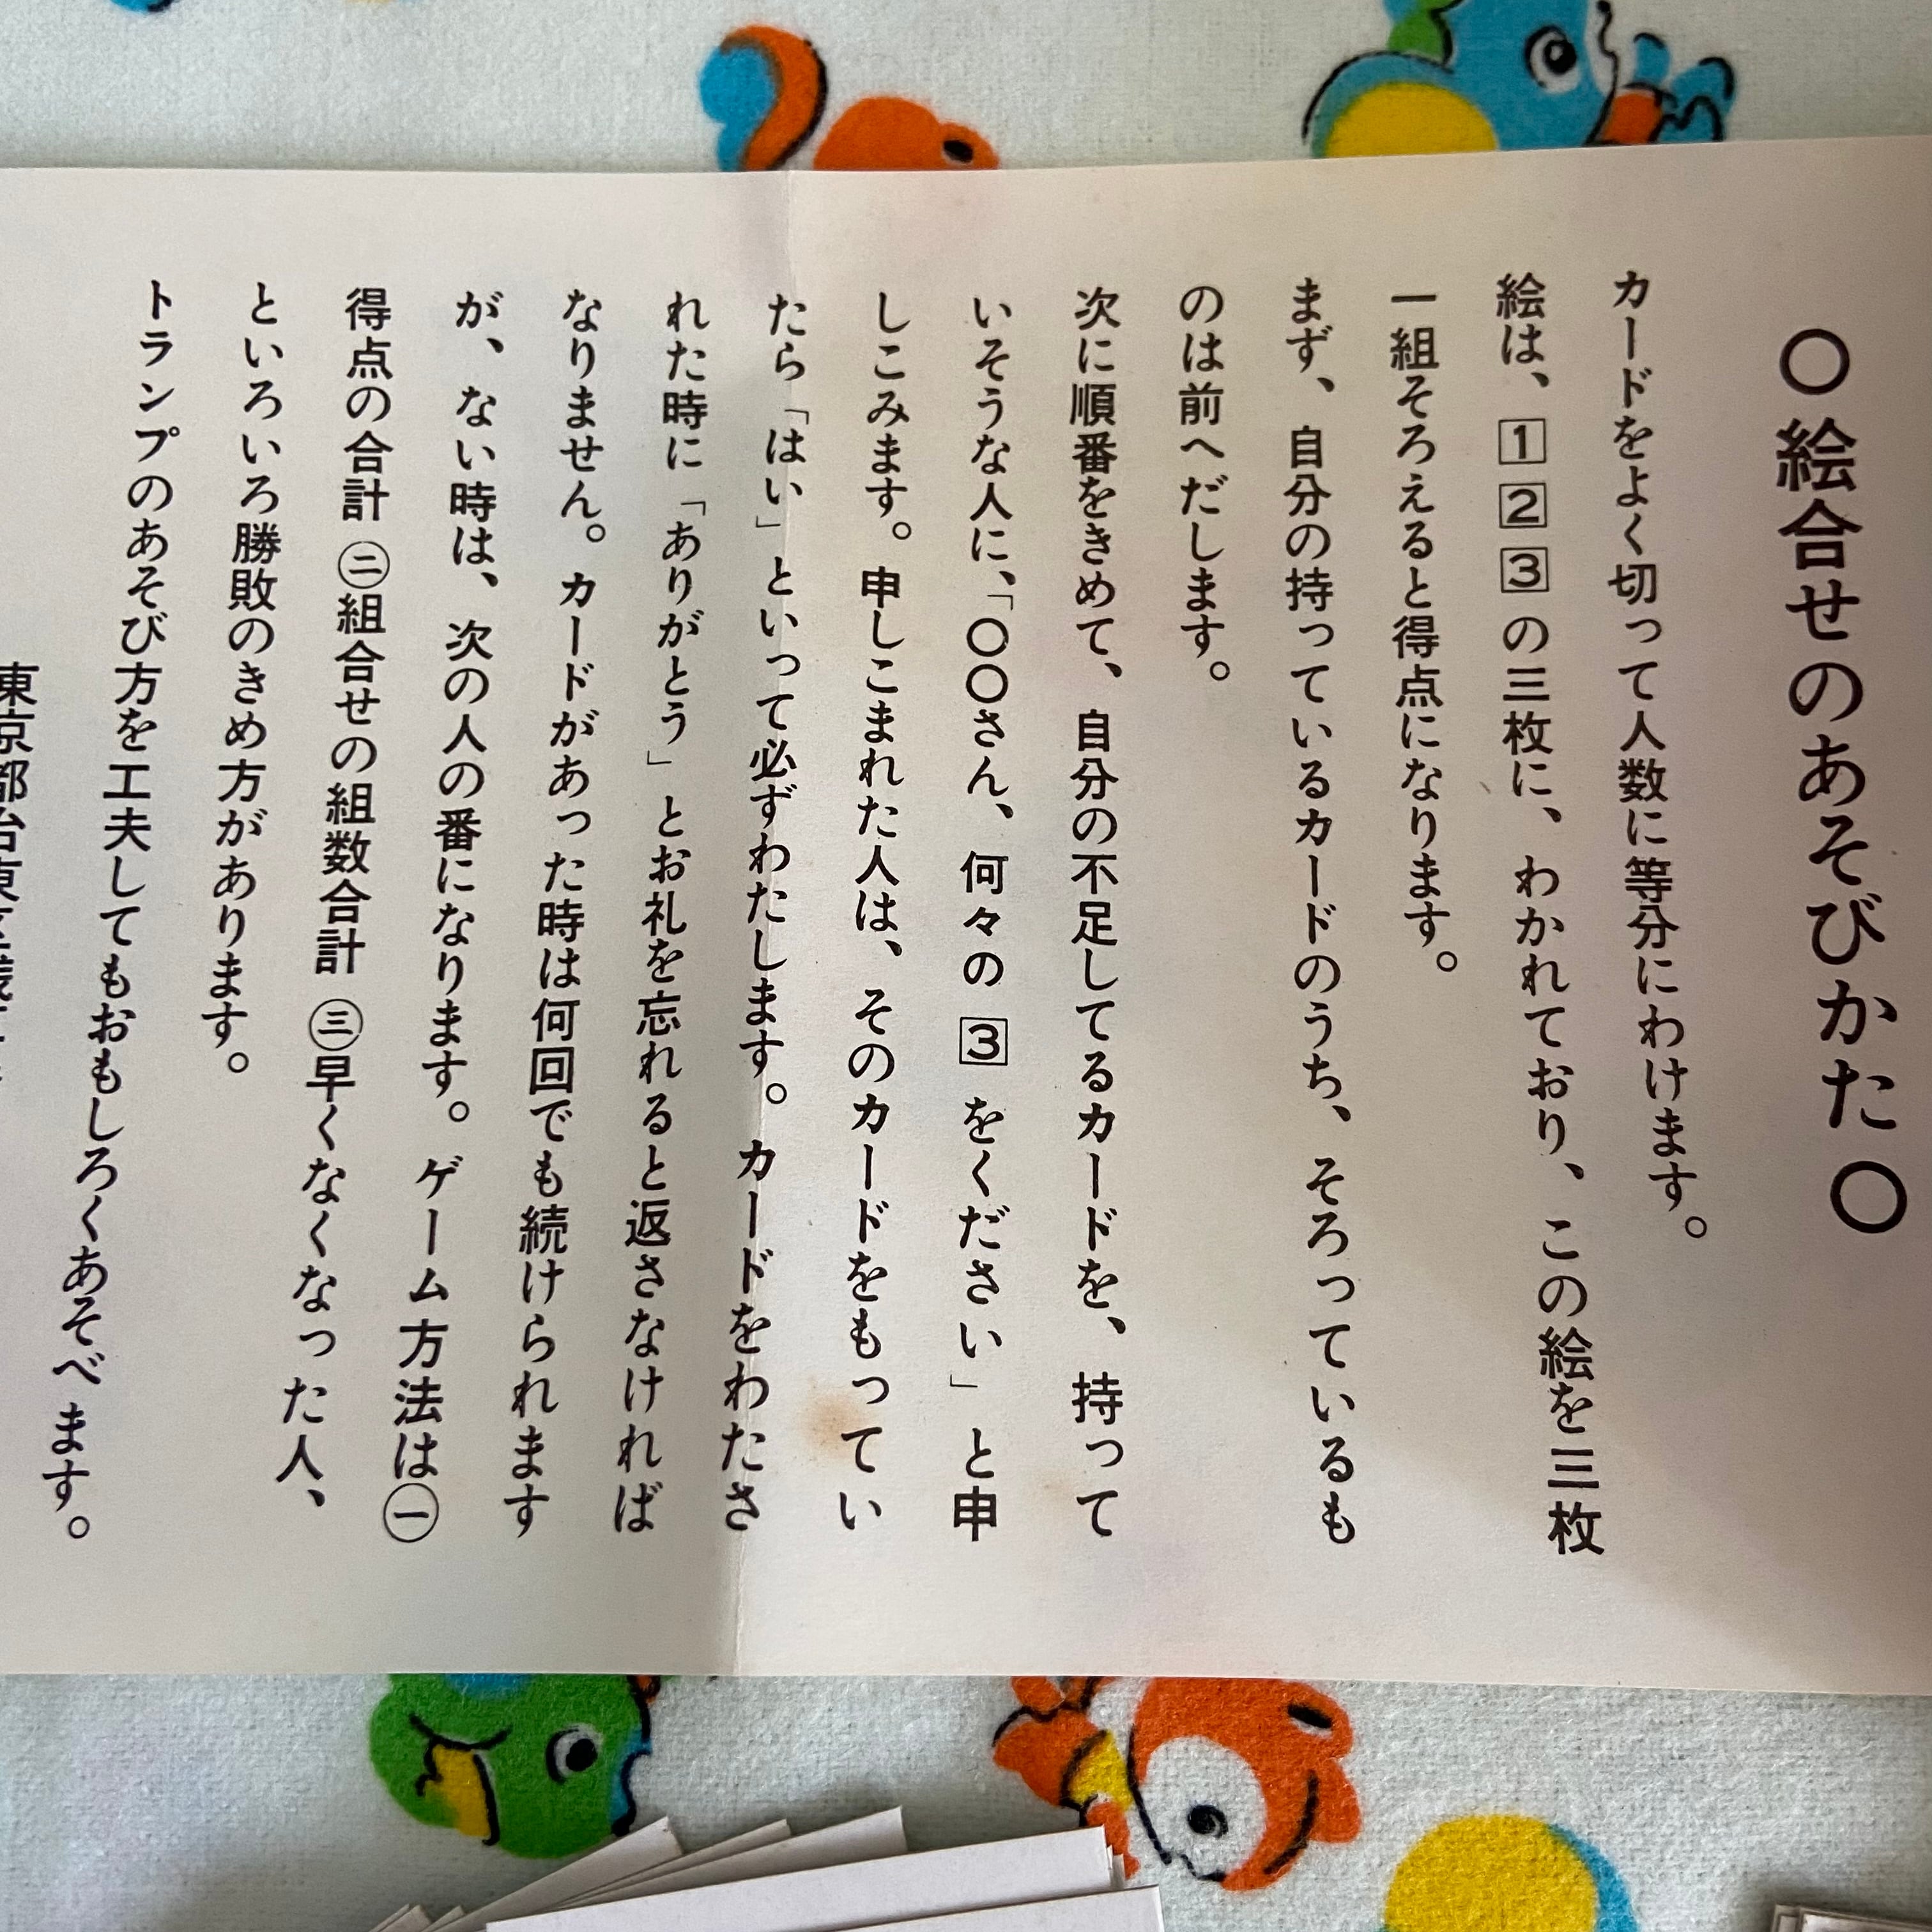 〇絵合せのあそびかた〇
カードをよく切って人数に等分にわけます。
絵は、1 2 3 の三枚に、わかれており、この絵を三枚
一組そろえると得点になります。
まず、自分の持っているカードのうち、そろっているも
のは前へだします。
次に順番をきめて、自分の不足してるカードを、持って
いそうな人に、「〇〇さん、何々の 3 をください」と申
しこみます。申しこまれた人は、そのカードをもってい
たら「はい」といって必ずわたします。カードをわたさ
れた時に「ありがとう」とお礼を忘れると返さなければ
なりません。カードがあった時は何回でも続けられます
が、ない時は、次の人の番になります。ゲーム方法は㊀
得点の合計 ㊁組合せの組数合計 ㊂早くなくなった人、
といろいろ勝敗のきめ方があります。
トランプのあそび方を工夫してもおもしろくあそべます。
東京都台東区